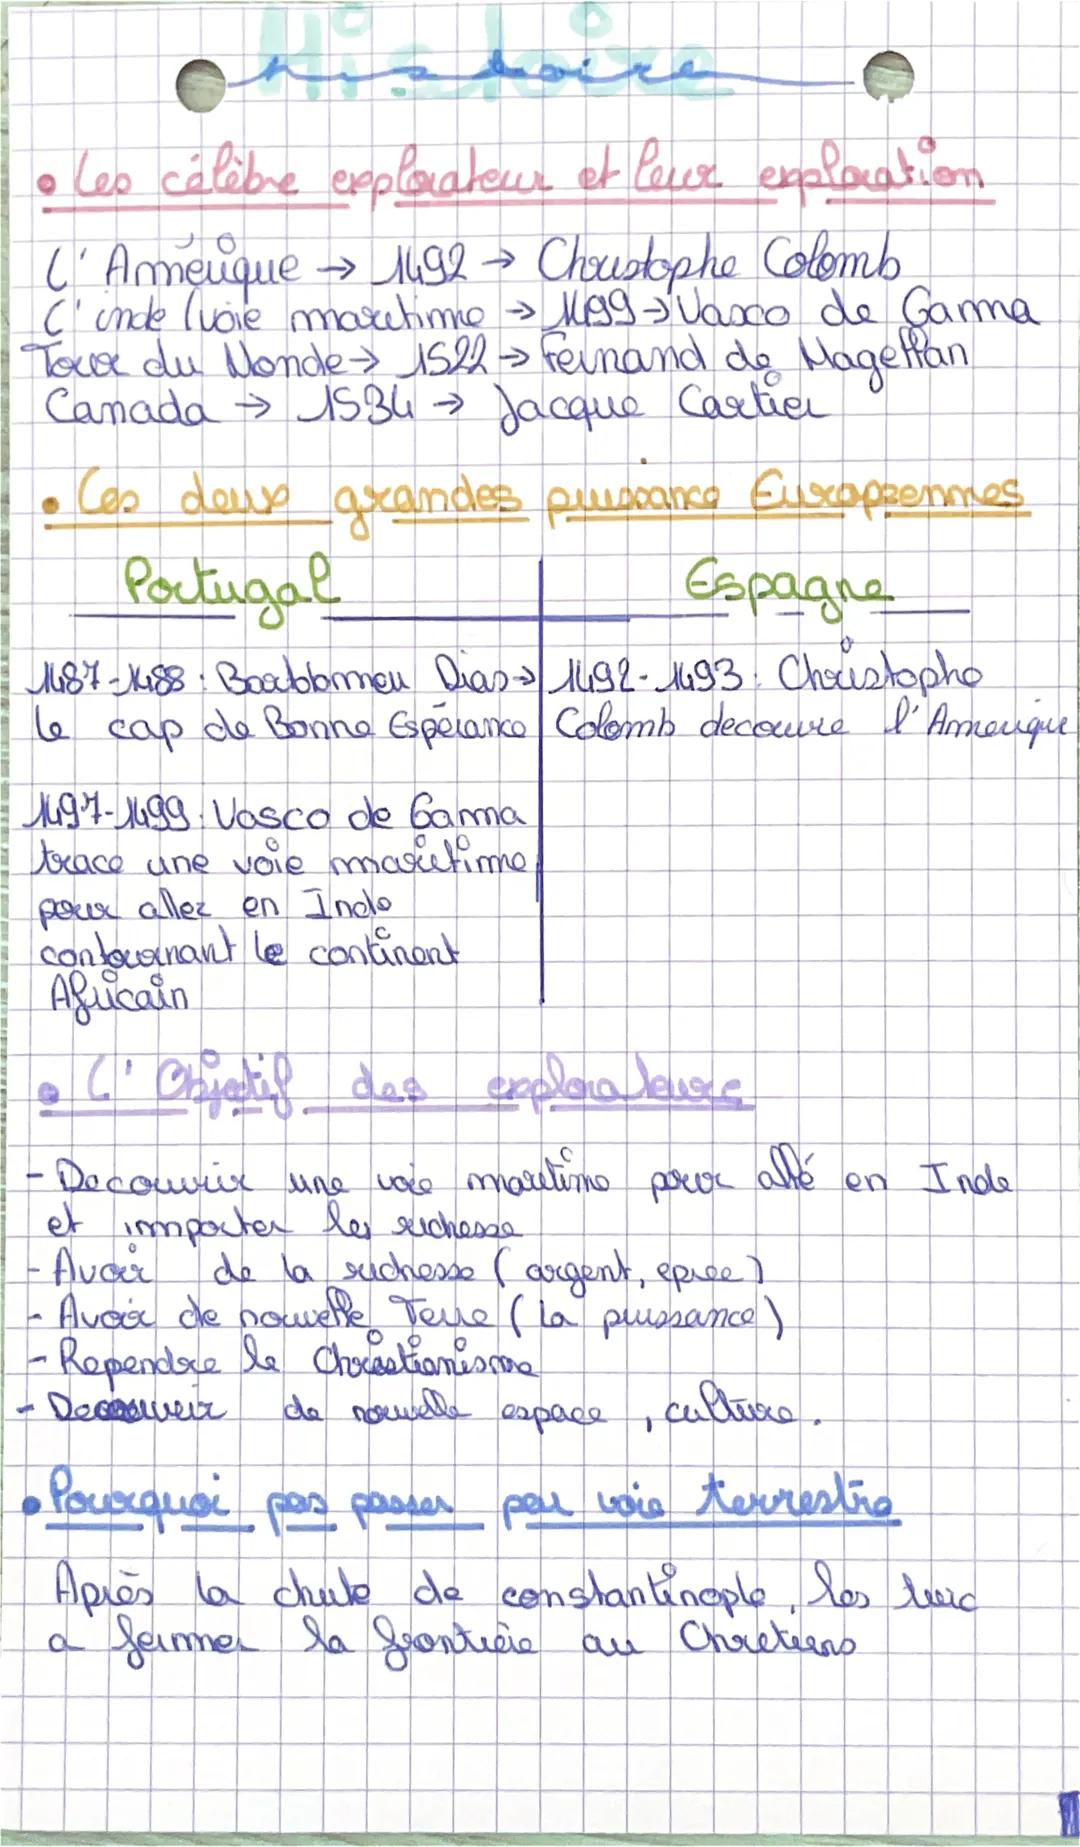 Histoire
• Les célèbre explorateur et leur exploration
L'Amérique → 1492 → Christophe Colomb
L'inde (voie maritime → 1499 → Vasco de Gama
Tour du Monde → 1522 → Fernand de Magellan
Canada → 1534 → Jacque Cartier
• Les deux grandes puissance Européennes
Portugal
Espagne
1487-1488 : Barblomeu Dias →
le cap de Bonne Espérance
1497-1499 : Vasco de Gama
trace une voie maritime
pour allez en Inde
contournant le continent
Africain
1492-1493 : Christophe
Colomb decouvre l'Amerique
• L'Objectif des explorateurs
- Decouvrir une voie maritime pour allé en Inde
et importer les richesse
- Avoir de la richesse (argent, epice)
- Avoir de nouvelle Terre (la puissance)
- Rependre le Christianisme
- Decouvrir de nouvelle espace, culture.
• Pourquoi pas passer par voie terrestre
Après la chute de constantinople, les turc
a fermer la frontière au Chretiens